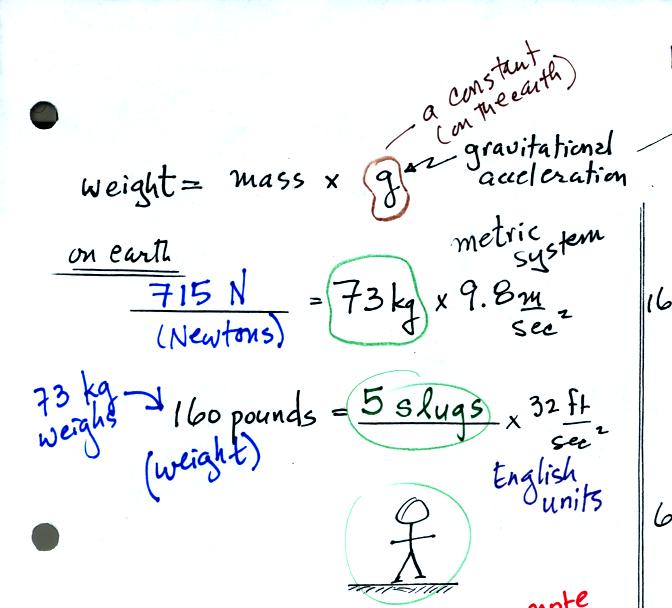 a constant
(on the earth)
weight = mass x g
gravitational
acceleration
on earth
metric
system
715 N = 73 kg x 9.8 m
sec²
(Newtons)
73 kg
weighs
160 pounds = 5 slugs x 32 ft
sec²
(weight)
English
units
16
6
note